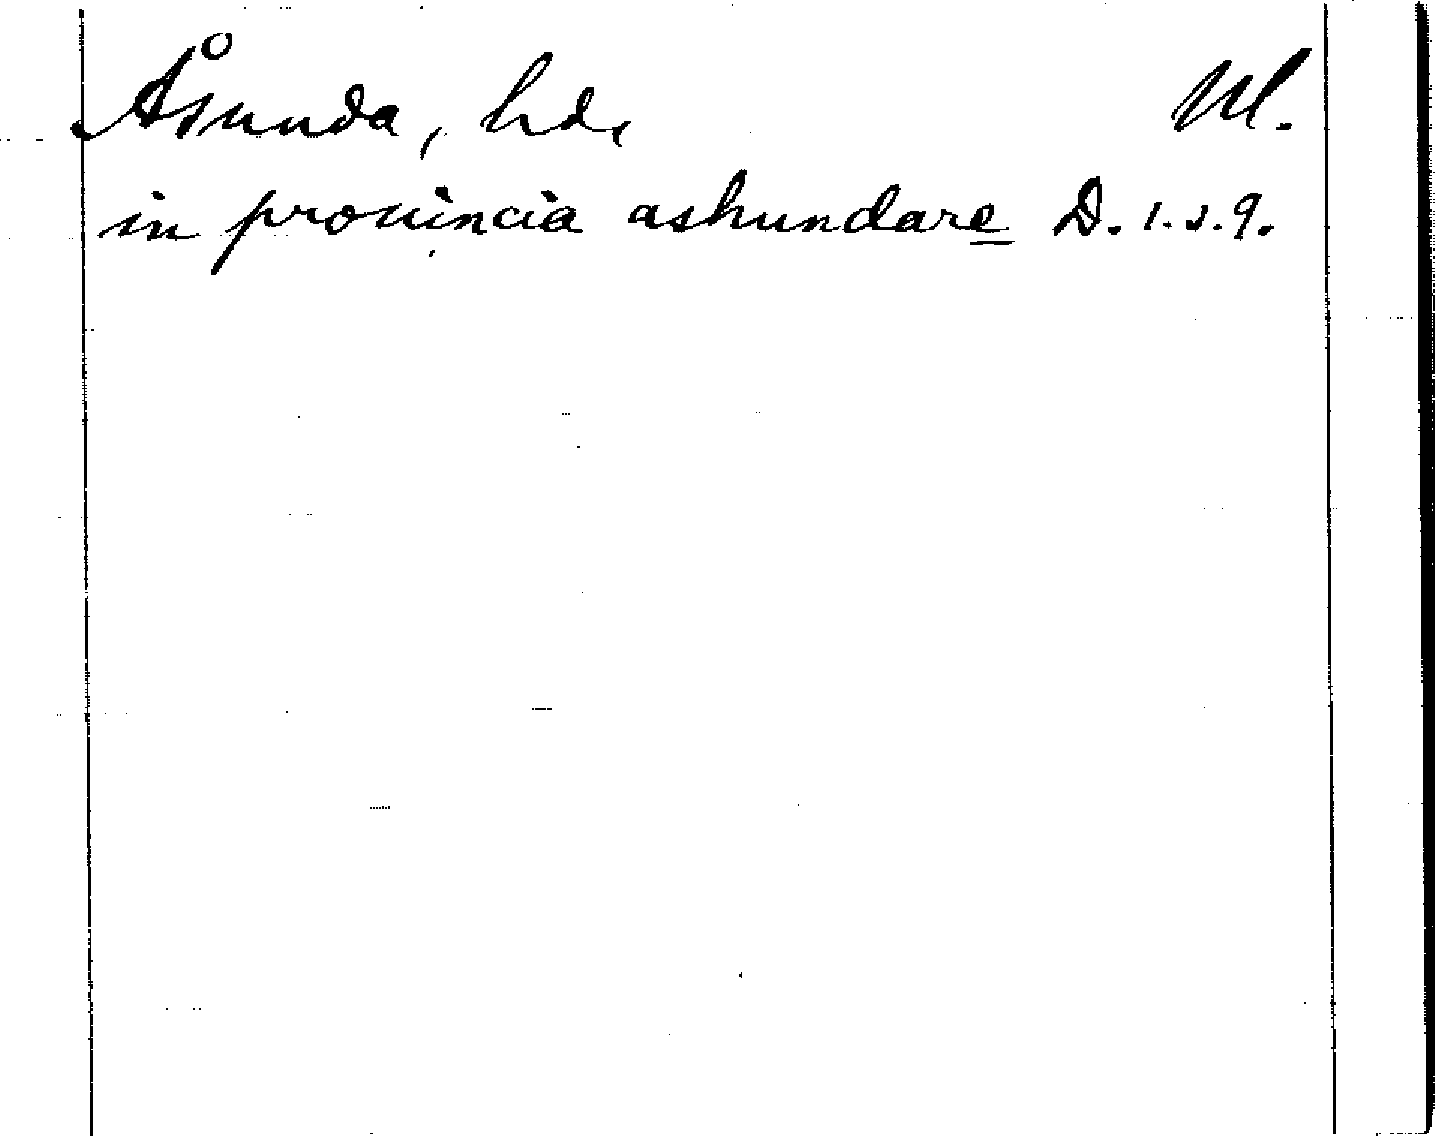 Åsunda, hd,                                    Ul.
in prouincia ashundare D. 1. s. 9.